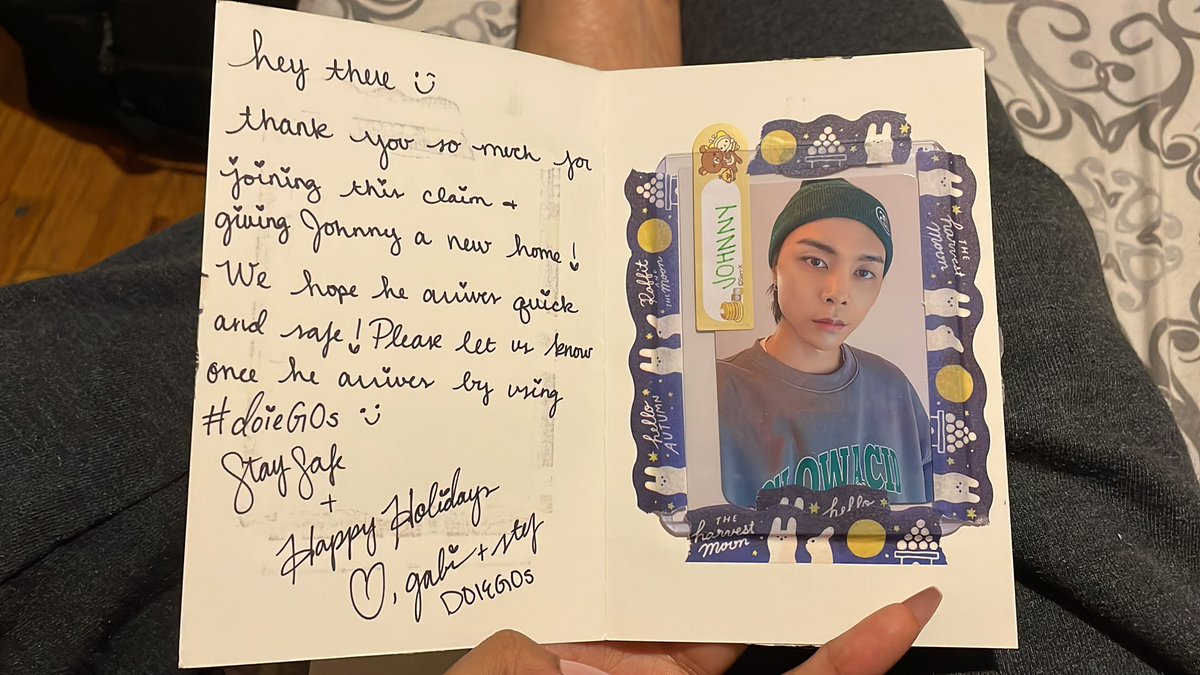 hey there :)
thank you so much for
joining this claim +
giving Johnny a new home!
We hope he arrives quick
and safe! Please let us know
once he arrives by using
#doieGOs :)
Stay Safe
+
Happy Holidays
♡, gabi + stef
DOIEGOs
JOHNNY
Rabbit
AND
THE MOON
hello
AUTUMN
THE
harvest
moon
hello
THE
harvest
moon